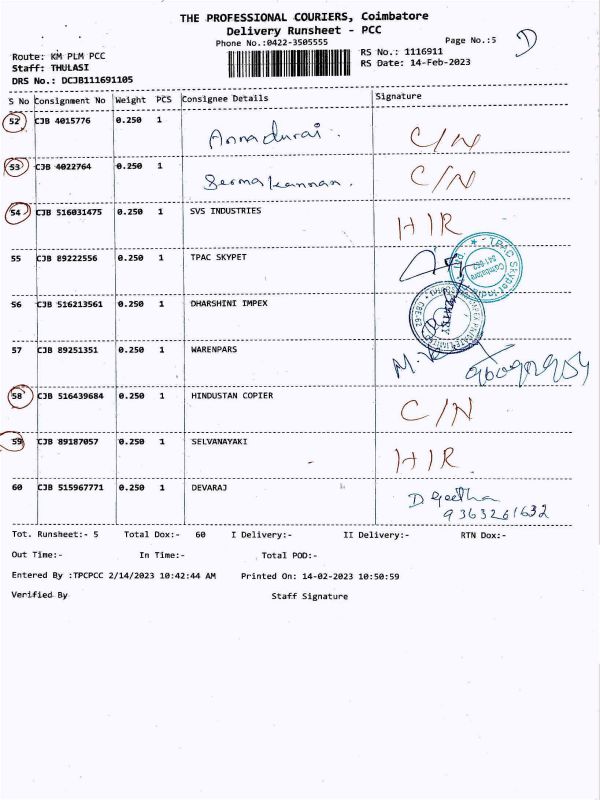 THE PROFESSIONAL COURIERS, Coimbatore
Delivery Runsheet - PCC
Phone No.:0422-3505555
Page No.:5
D
Route: KM PLM PCC
Staff: THULASI
DRS No.: DCJB111691105
RS No.: 1116911
RS Date: 14-Feb-2023
S No Consignment No Weight PCS Consignee Details Signature
52 CJB 4015776 0.250 1 Annadurai. C/N
53 CJB 4022764 0.250 1 C/N
54 CJB 516031475 0.250 1 SVS INDUSTRIES H/R
55 CJB 89222556 0.250 1 TPAC SKYPET
56 CJB 516213561 0.250 1 DHARSHINI IMPEX
57 CJB 89251351 0.250 1 WARENPARS
58 CJB 516439684 0.250 1 HINDUSTAN COPIER C/N
59 CJB 89187057 0.250 1 SELVANAYAKI H/R
60 CJB 515967771 0.250 1 DEVARAJ D Geetha
9363261632
Tot. Runsheet:- 5 Total Dox:- 60 I Delivery:- II Delivery:- RTN Dox:-
Out Time:- In Time:- Total POD:-
Entered By :TPCPCC 2/14/2023 10:42:44 AM Printed On: 14-02-2023 10:50:59
Verified By Staff Signature